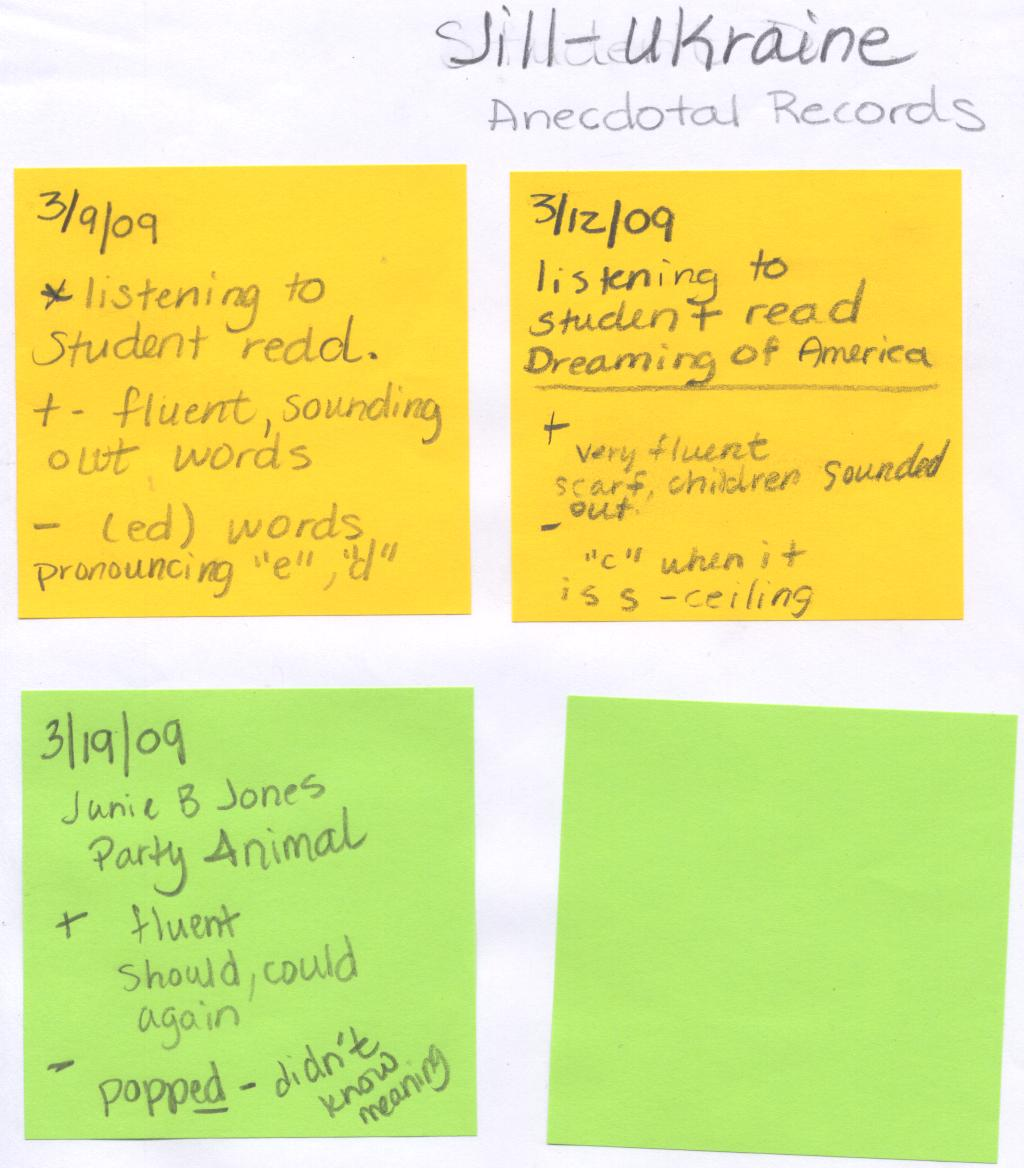 Jill-Ukraine
Anecdotal Records
3/9/09
* listening to
Student read.
+ - fluent, sounding
out words
- (ed) words
pronouncing "e", "d"
3/12/09
listening to
student read
Dreaming of America
+
very fluent
scarf, children sounded
out.
-
"c" when it
is s -ceiling
3/19/09
Junie B Jones
Party Animal
+ fluent
should, could
again
-
popped - didn't
know
meaning